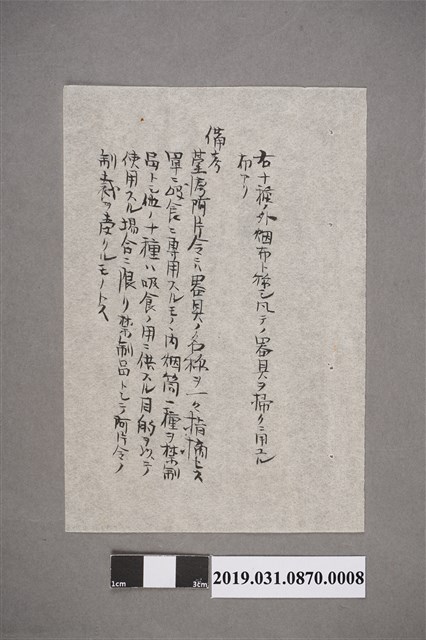 右十種ノ外烟布ト称シ凡テノ器具ヲ掃クニ用ユル
布アリ
備考
臺湾阿片令ニハ器具ノ名称ヲ一々指摘セス
単ニ吸食ニ専用スルモノノ内烟筒一種ヲ禁制
品トシ他ノ十種ハ吸食ノ用ニ供スル目的ヲ以テ
使用スル場合ニ限リ禁制品トシテ阿片令ノ
制裁ヲ受クルモノトス
1cm
3cm
2019.031.0870.0008